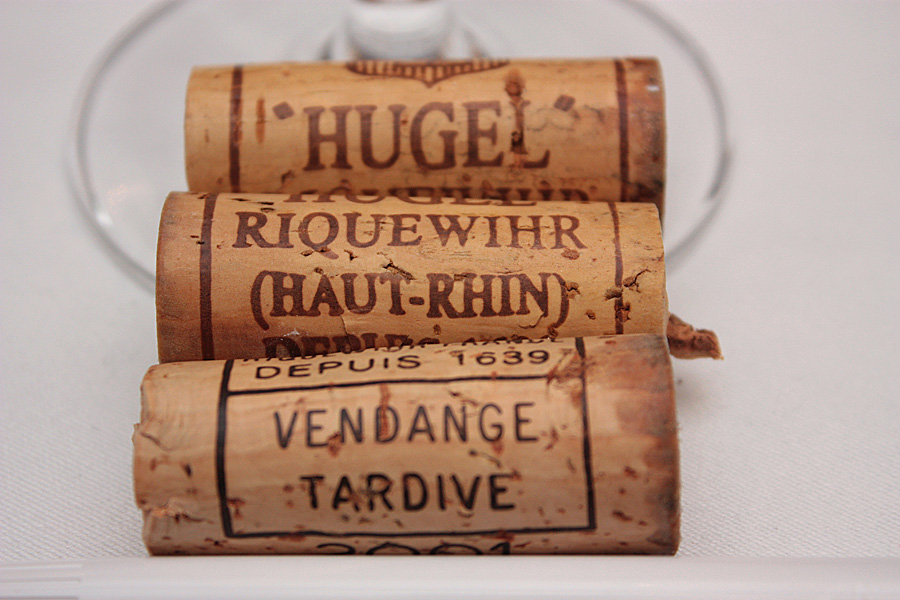 "HUGEL"
RIQUEWIHR
(HAUT-RHIN)
DEPUIS 1639
VENDANGE
TARDIVE
2001